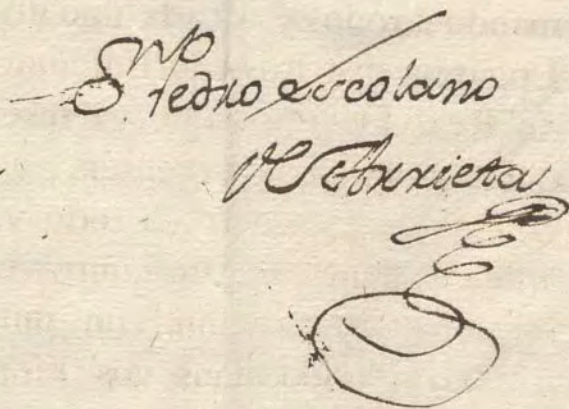 Dn Pedro Escolano
de Arrieta